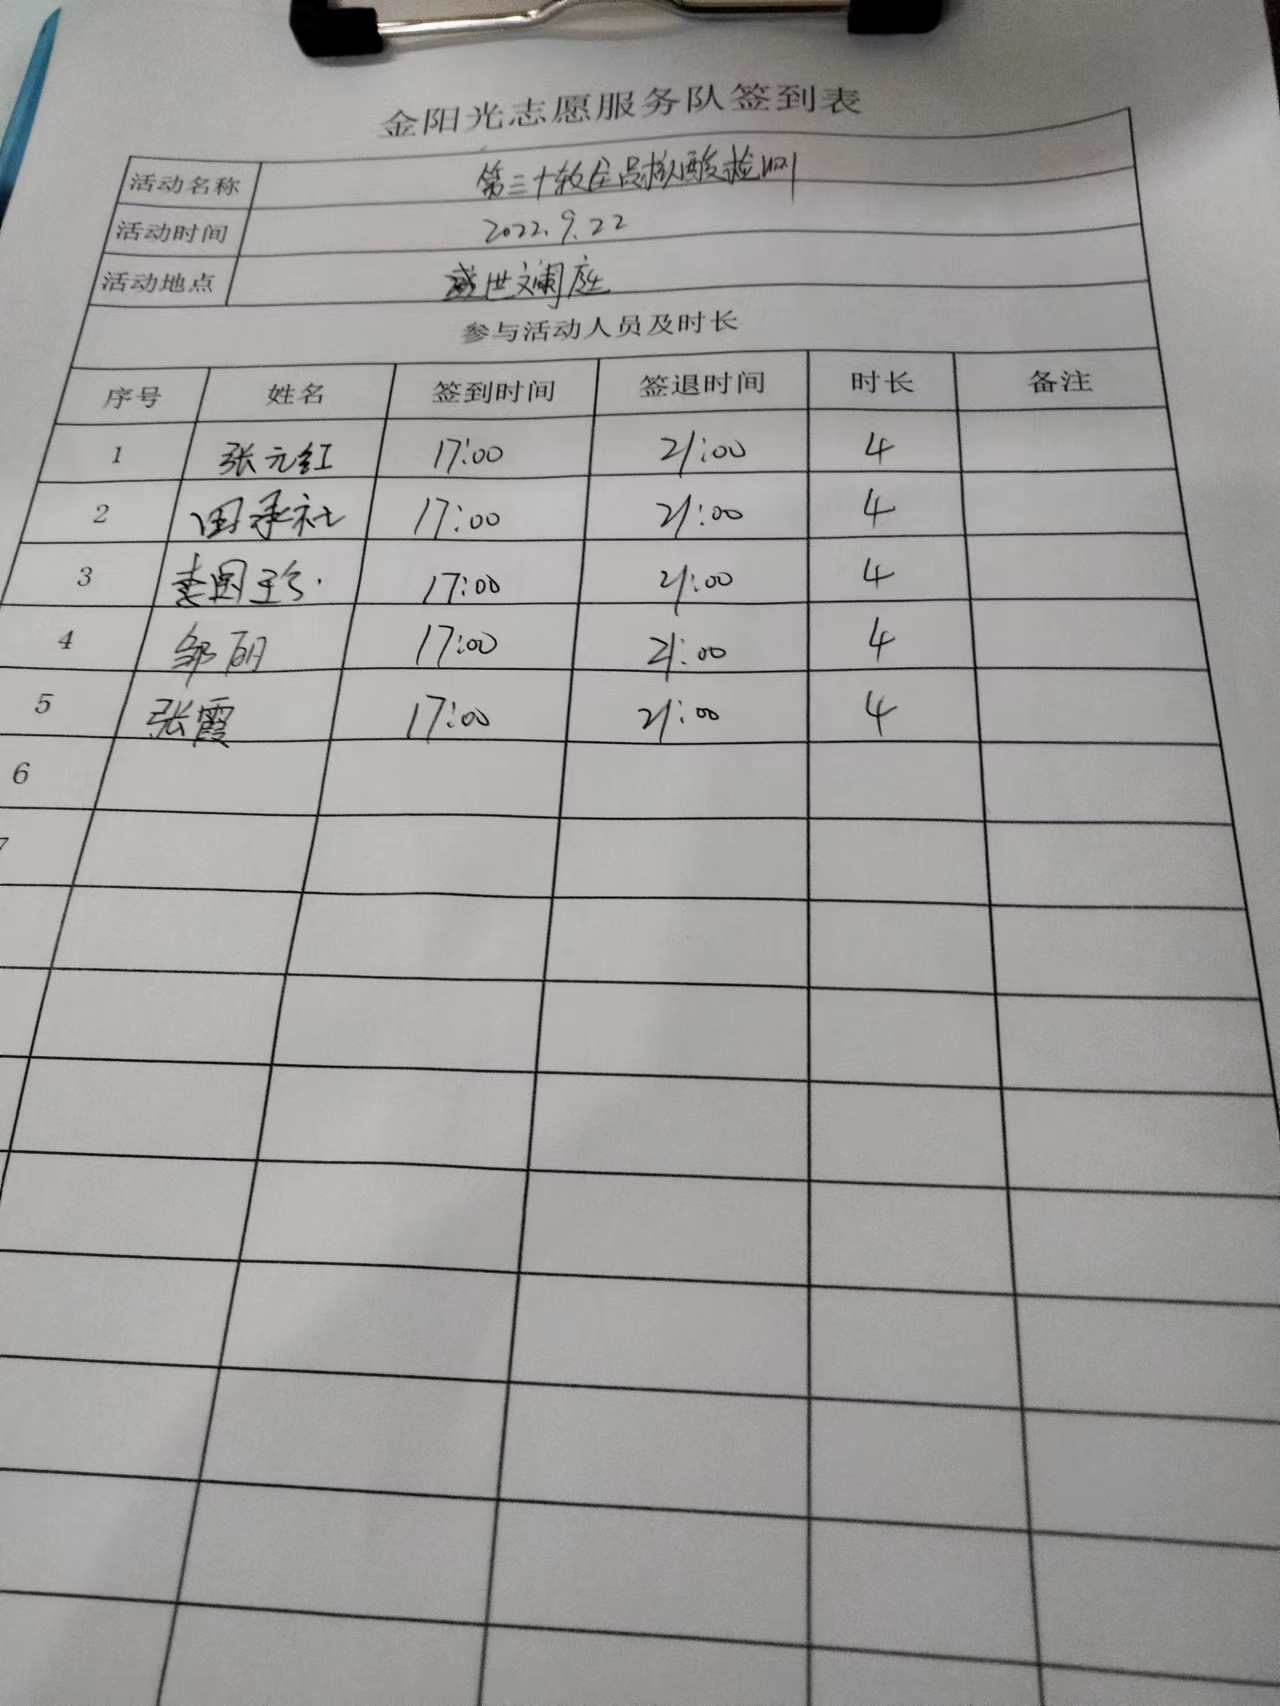 金阳光志愿服务队签到表
活动名称 第三十轮全员核酸检测
活动时间 2022.9.22
活动地点 盛世文澜庭
参与活动人员及时长
序号 姓名 签到时间 签退时间 时长 备注
1 张元红 17:00 21:00 4
2 田承社 17:00 21:00 4
3 李国珍 17:00 21:00 4
4 邹丽 17:00 21:00 4
5 张霞 17:00 21:00 4
6
7